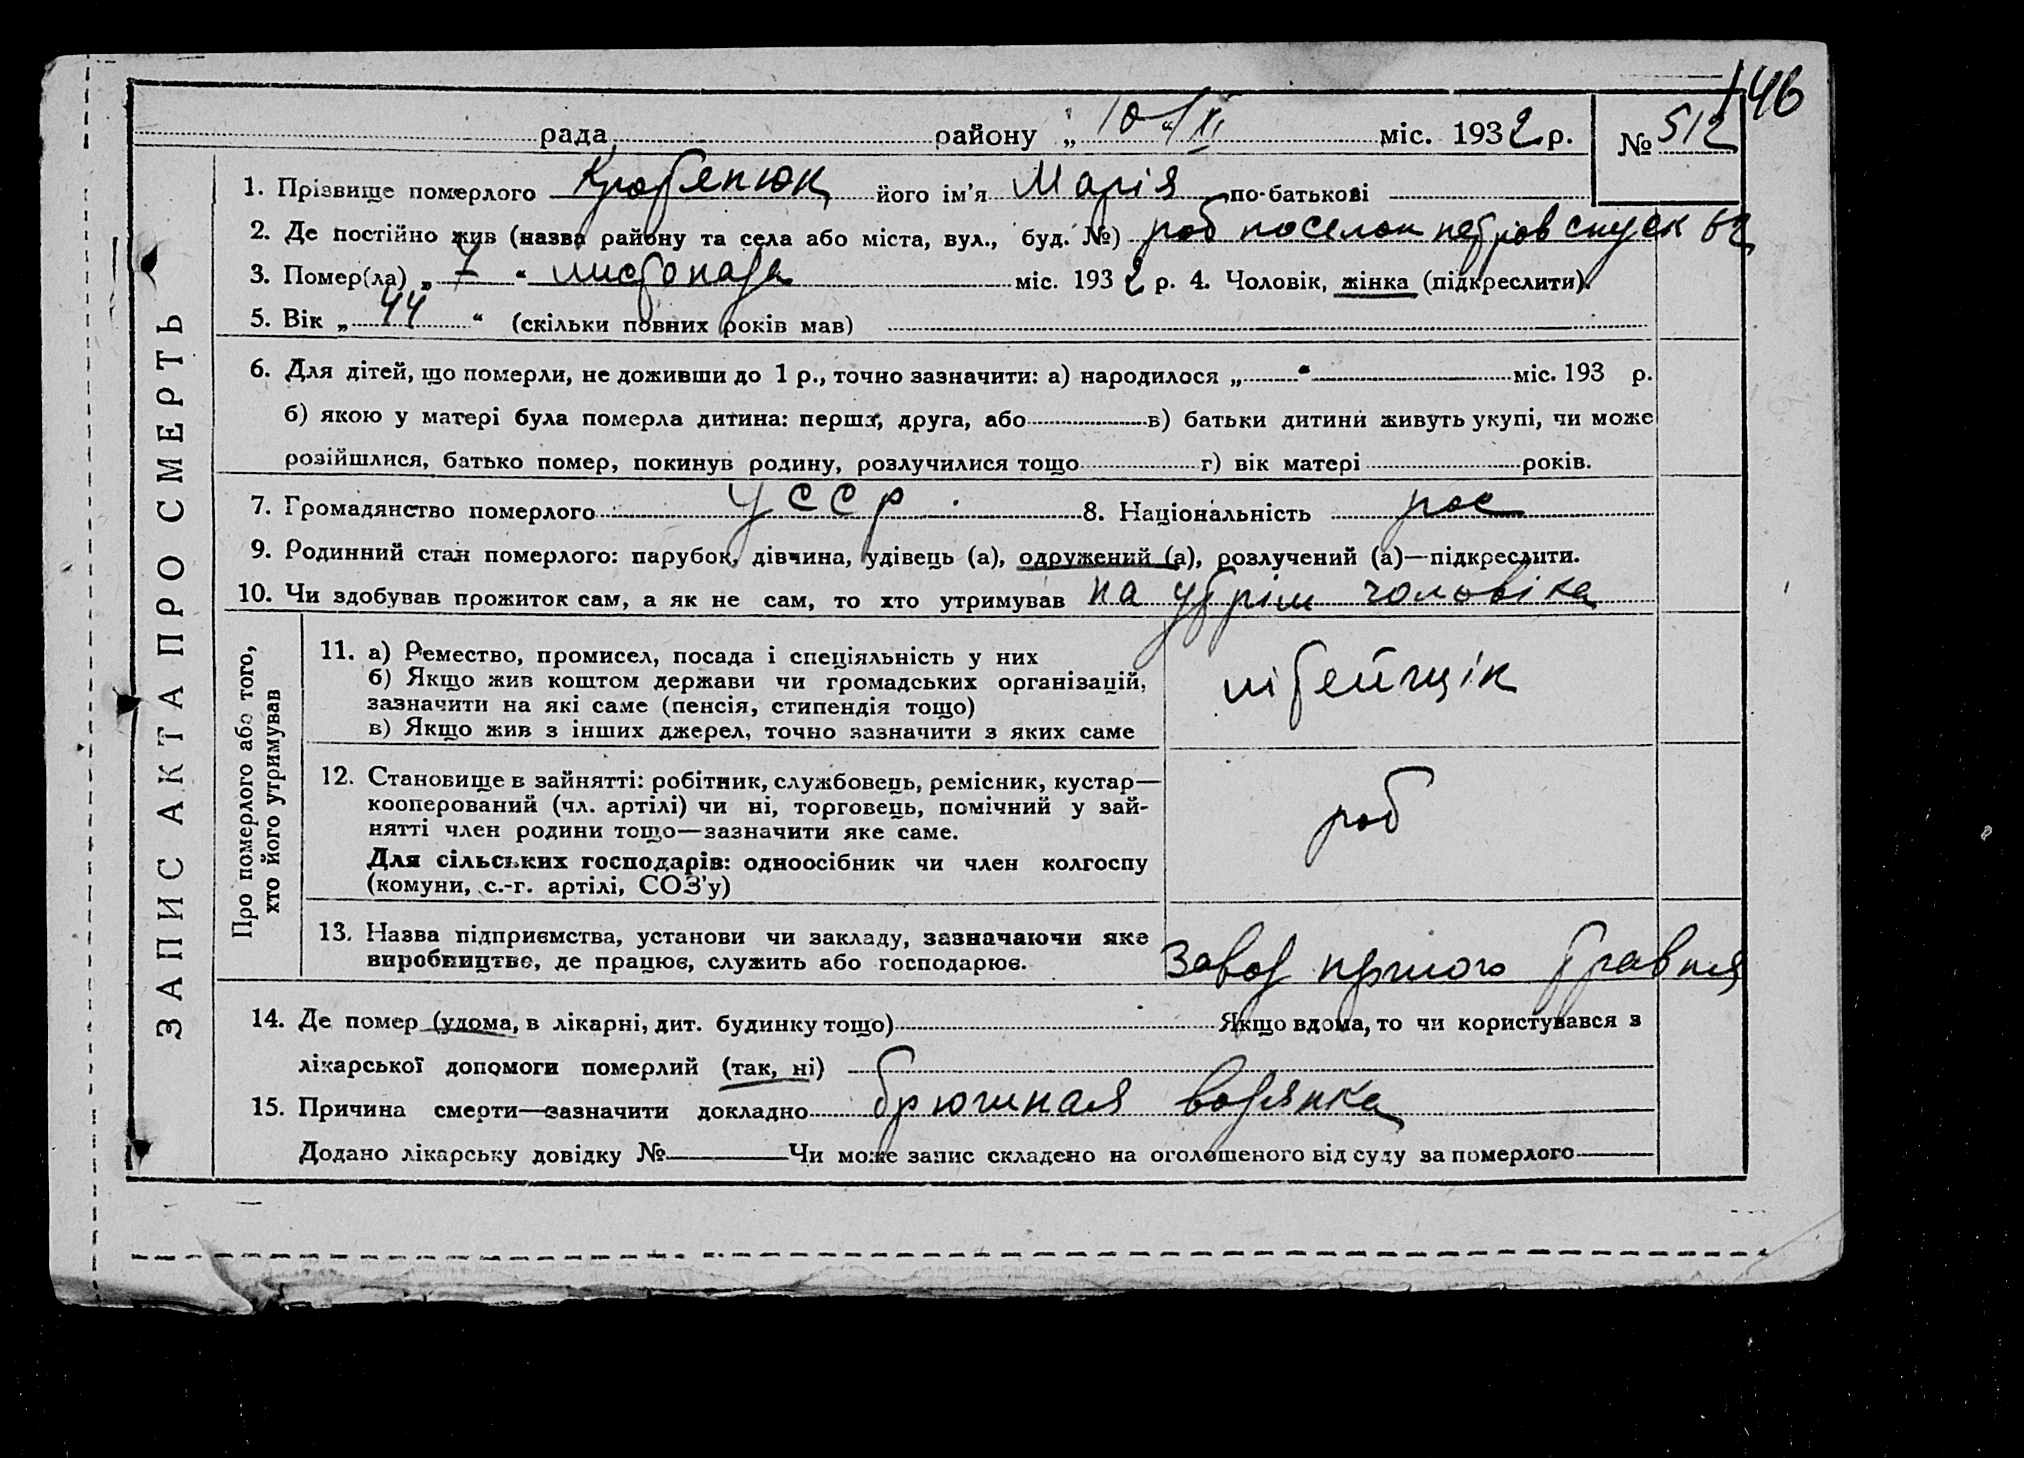 146
рада району „10“ XI міс. 1932 р. № 512
1. Прізвище померлого його ім'я Марія по-батькові
2. Де постійно жив (назва району та села або міста, вул., буд. №) роб поселок петров спуск 62
3. Помер(ла) „7“ листопада міс. 1932 р. 4. Чоловік, жінка (підкреслити).
5. Вік „44“ (скільки повних років мав)
6. Для дітей, що померли, не доживши до 1 р., точно зазначити: а) народилося „ “ міс. 193 р.
б) якою у матері була померла дитина: перша, друга, або в) батьки дитини живуть укупі, чи може
розійшлися, батько помер, покинув родину, розлучилися тощо г) вік матері років.
7. Громадянство померлого УССР 8. Національність рос
9. Родинний стан померлого: парубок, дівчина, удівець (а), одружений (а), розлучений (а)—підкреслити.
10. Чи здобував прожиток сам, а як не сам, то хто утримував на утрім чоловіка
ЗАПИС АКТА ПРО СМЕРТЬ
Про померлого або того,
хто його утримував
11. а) Ремество, промисел, посада і спеціяльність у них
б) Якщо жив коштом держави чи громадських організацій,
зазначити на які саме (пенсія, стипендія тощо)
в) Якщо жив з інших джерел, точно зазначити з яких саме
лібейщік
12. Становище в зайнятті: робітник, службовець, ремісник, кустар—
кооперований (чл. артілі) чи ні, торговець, помічний у зай-
нятті член родини тощо—зазначити яке саме.
Для сільських господарів: одноосібник чи член колгоспу
(комуни, с.-г. артілі, СОЗ'у)
роб
13. Назва підприємства, установи чи закладу, зазначаючи яке
виробництво, де працює, служить або господарює.
Завод першого травня
14. Де помер (удома, в лікарні, дит. будинку тощо) Якщо вдома, то чи користувався з
лікарської допомоги померлий (так, ні)
15. Причина смерти—зазначити докладно брюшная водянка
Додано лікарську довідку № Чи може запис складено на оголошеного від суду за померлого